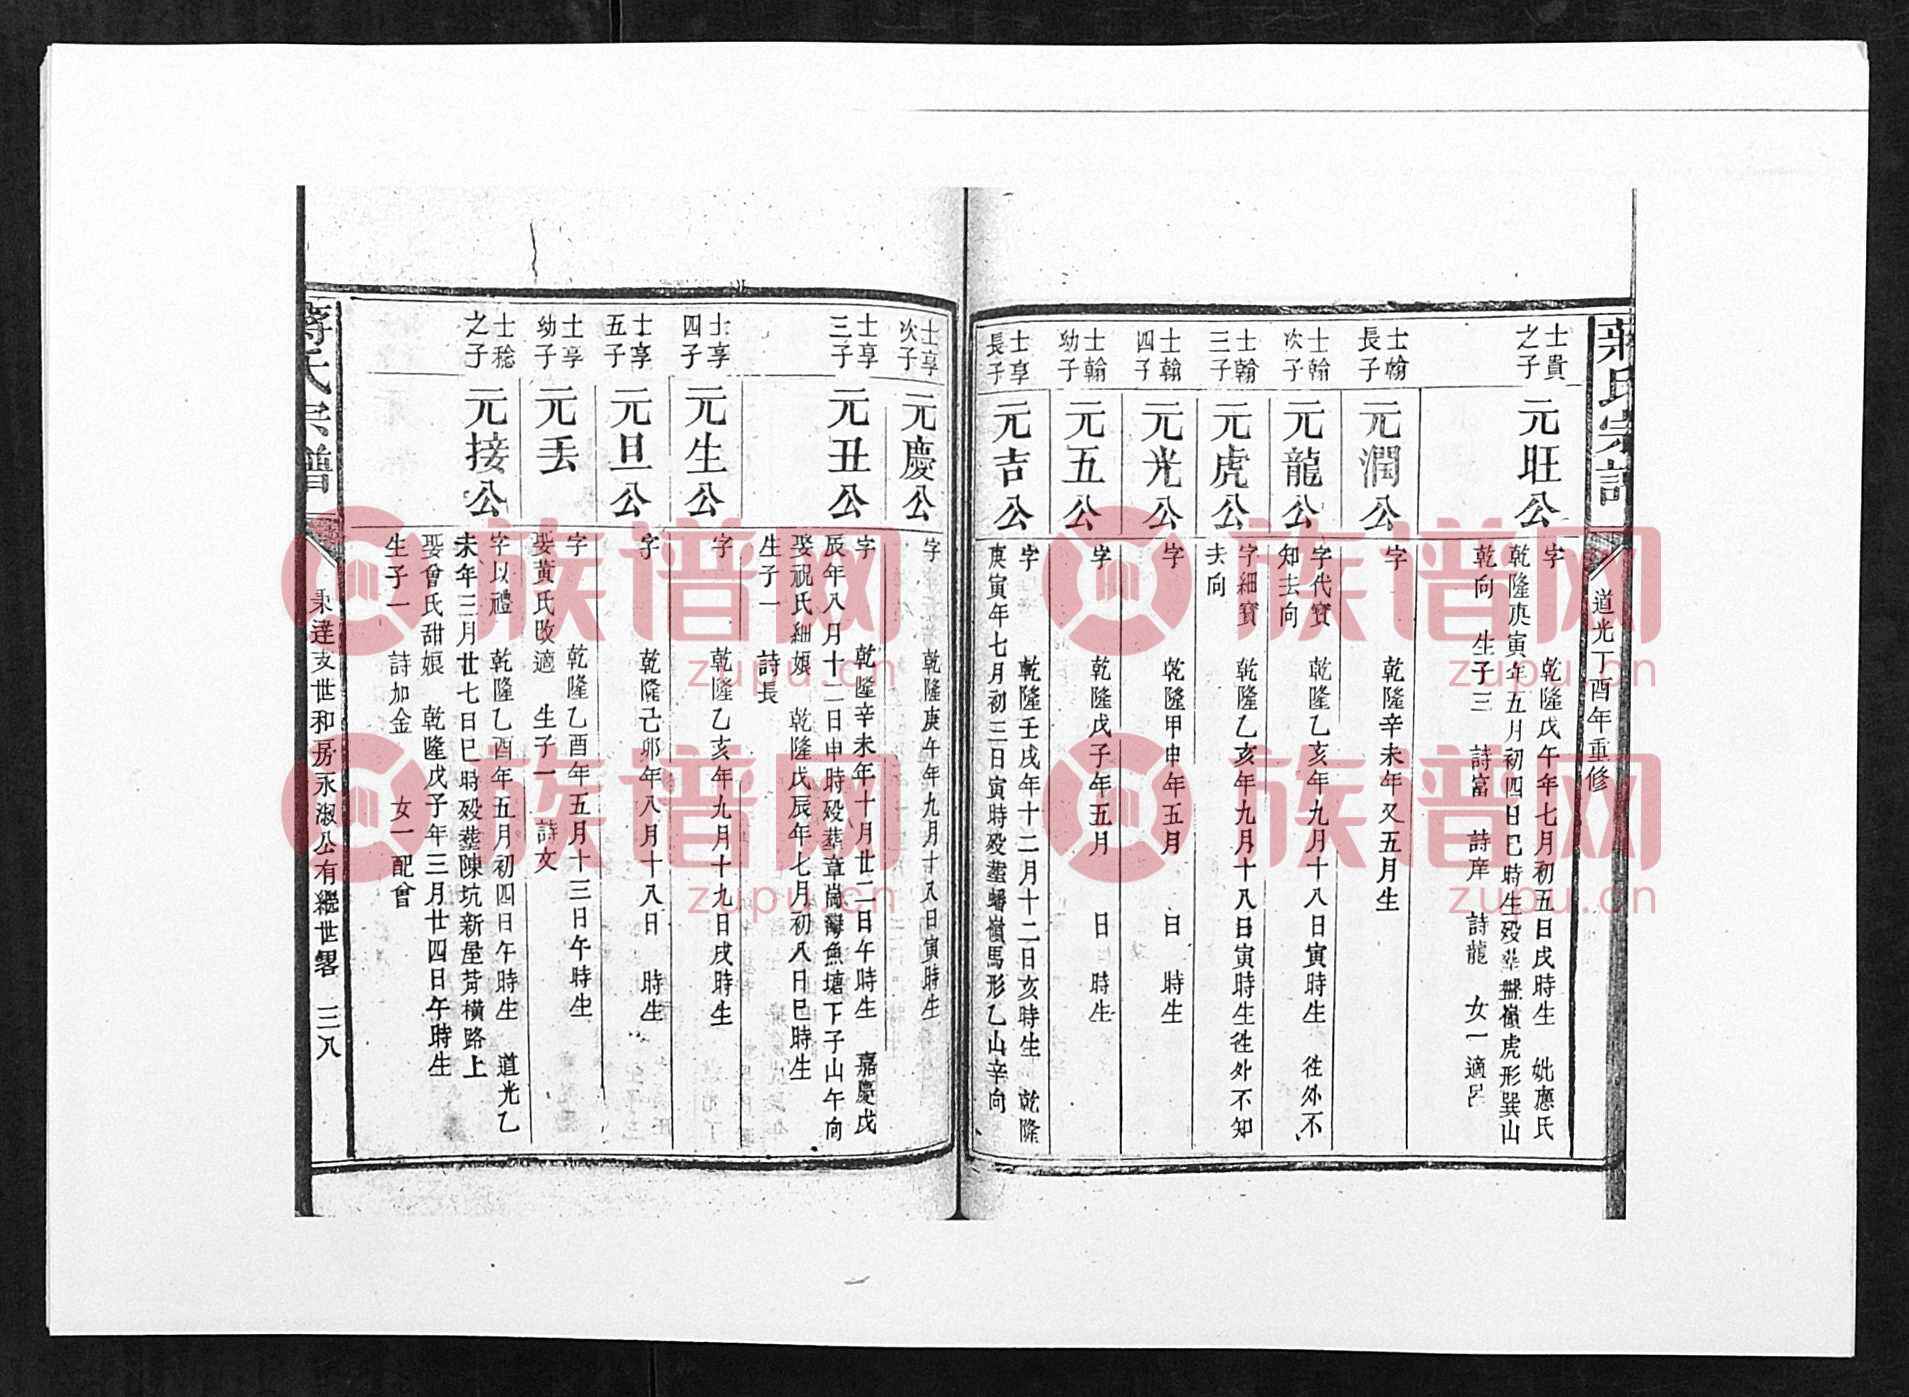 蔣氏宗譜
道光丁酉年重修
士貴之子
元旺公
字 乾隆戊午年七月初五日戌時生 妣應氏
乾隆庚寅年五月初四日巳時生歿塟盤嶺虎形巽山
乾向 生子三 詩富 詩庠 詩龍 女一適呂
士翰長子
元潤公
字 乾隆辛未年又五月生
士翰次子
元龍公
字代寶 乾隆乙亥年九月十八日寅時生 徃外不
知去向
士翰三子
元虎公
字細寶 乾隆乙亥年九月十八日寅時生徃外不知
去向
士翰四子
元光公
字 乾隆甲申年五月 日 時生
士翰幼子
元五公
字 乾隆戊子年五月 日 時生
士享長子
元吉公
字 乾隆壬戌年十二月十二日亥時生 乾隆
庚寅年七月初三日寅時歿塟蟠嶺馬形乙山辛向
士享次子
元慶公
字 乾隆庚午年九月十八日寅時生
士享三子
元丑公
字 乾隆辛未年十月廿二日午時生 嘉慶戊
辰年八月十二日申時歿塟章崗灣魚塘下子山午向
娶祝氏細娘 乾隆戊辰年七月初八日巳時生
生子一 詩長
士享四子
元生公
字 乾隆乙亥年九月十九日戌時生
士享五子
元旦公
字 乾隆己卯年八月十八日 時生
士享幼子
元丢
字 乾隆乙酉年五月十三日午時生
娶黃氏改適 生子一 詩文
士稔之子
元接公
字以禮 乾隆乙酉年五月初四日午時生 道光乙
未年三月廿七日巳時歿塟陳坑新屋芳橫路上
娶曾氏甜娘 乾隆戊子年三月廿四日午時生
生子一 詩加金 女一 配曾
蔣氏宗譜
東達支世和房永淑公有繼世畧 三八
族谱网
zupu.cn
族谱网
zupu.cn
族谱网
zupu.cn
族谱网
zupu.cn